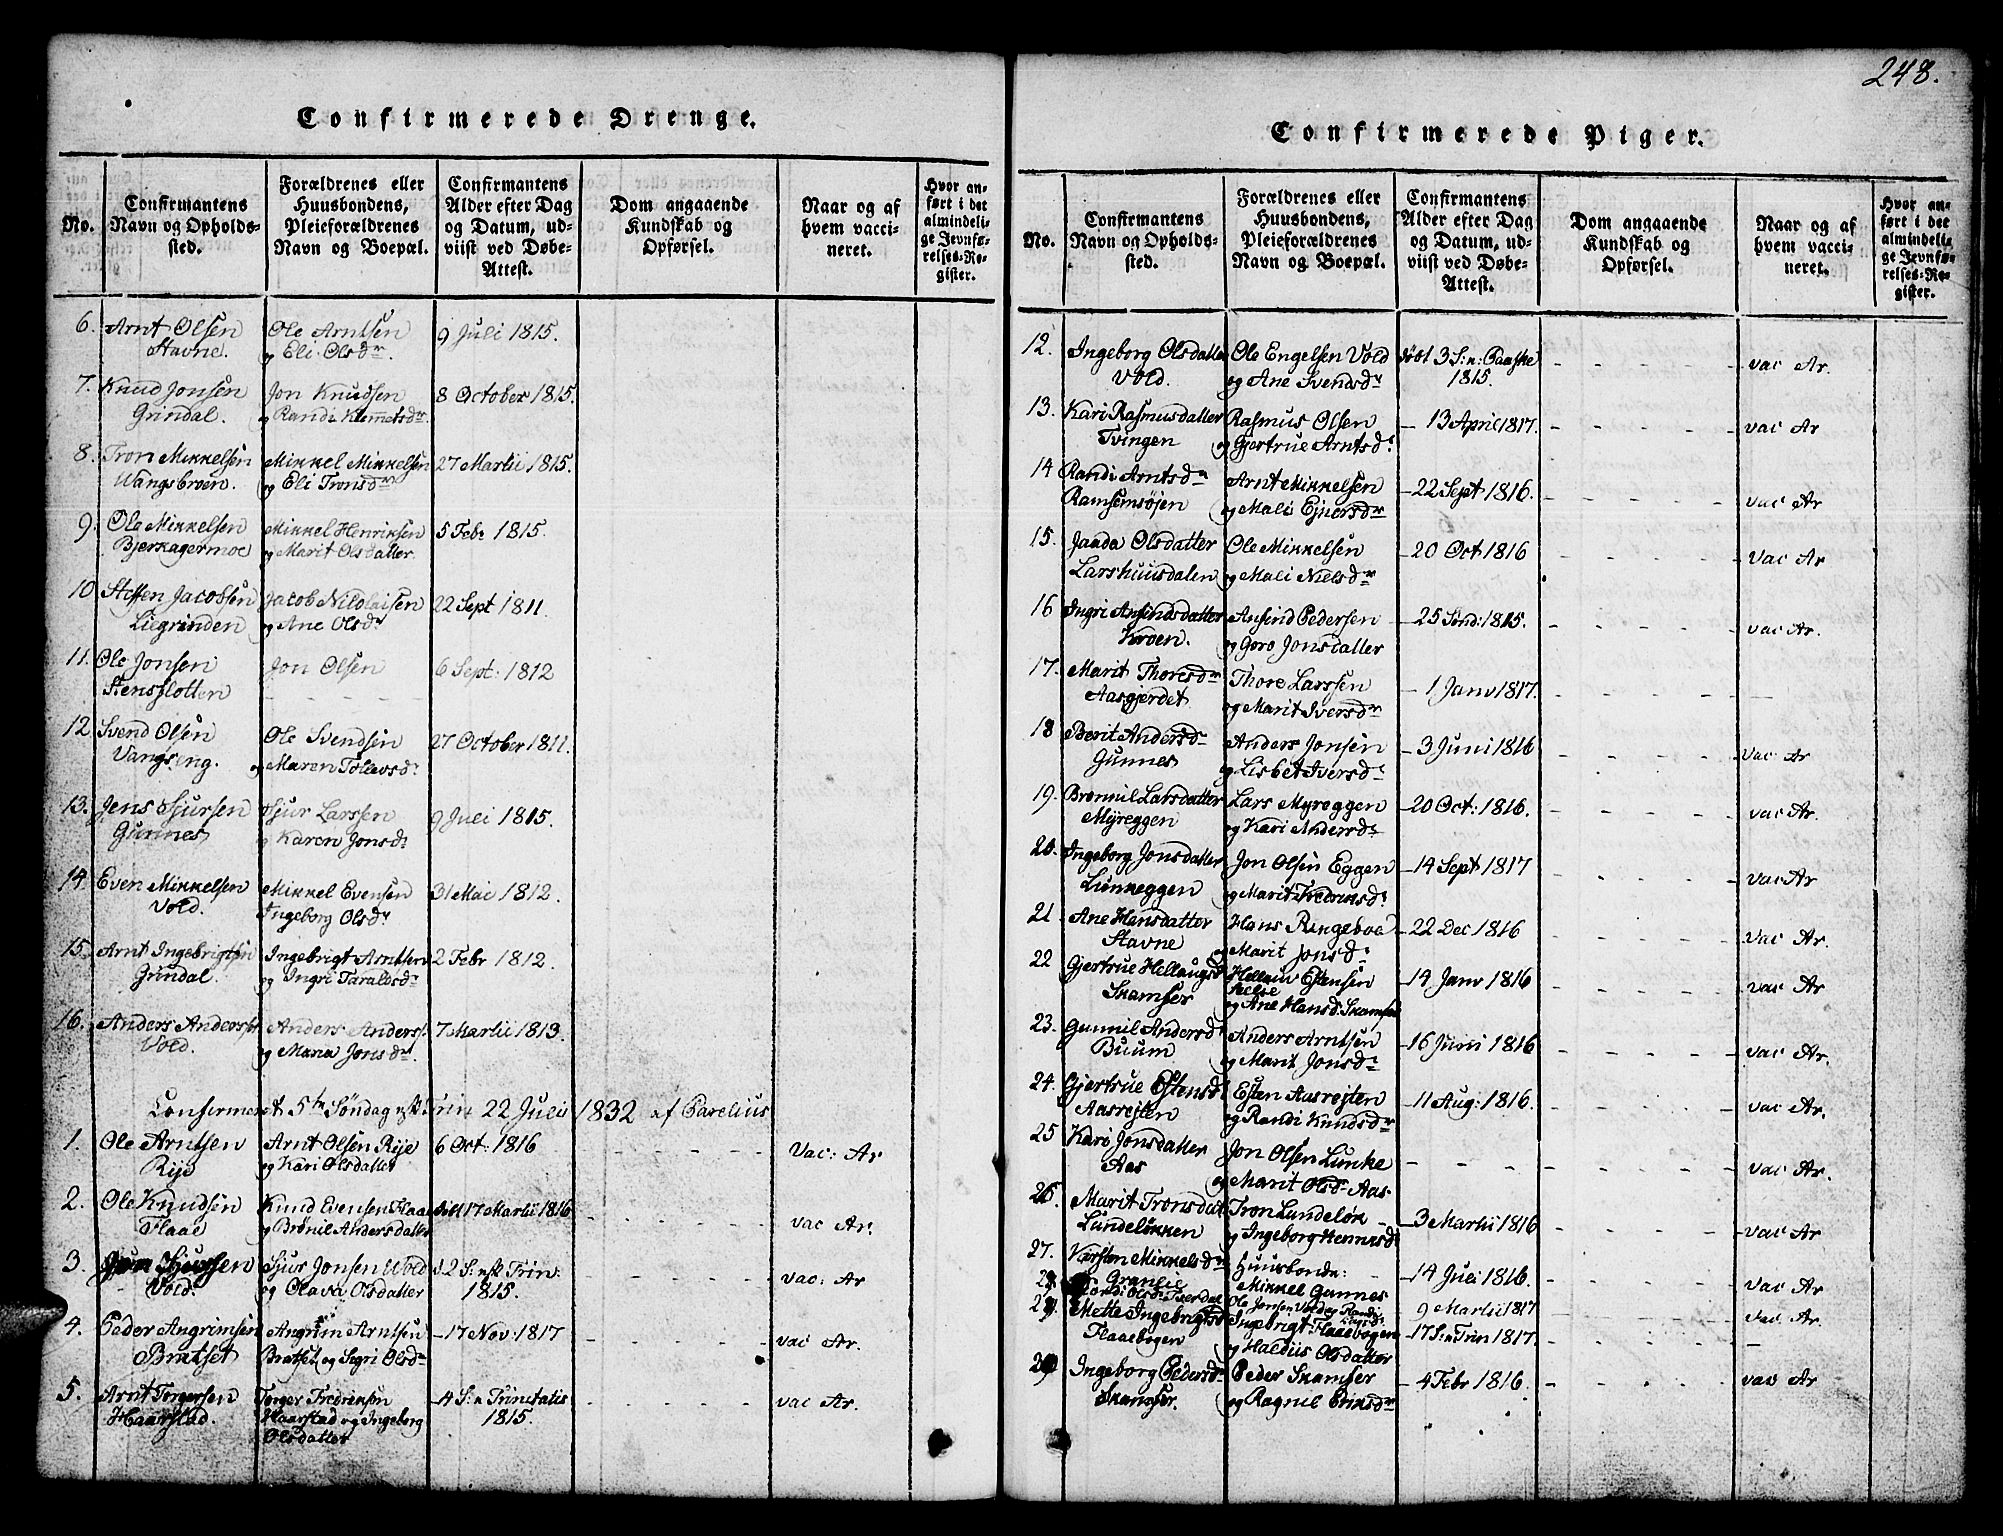 248.
Confirmerede Drenge.
No.
Confirmantens Navn og Opholdssted.
Forældrenes eller Huusbondens, Pleieforældrenes Navn og Boepæl.
Confirmantens Alder efter Dag og Datum, udviist ved Døbe-Attest.
Dom angaaende Kundskab og Opførsel.
Naar og af hvem vaccineret.
Hvor anført i det almindelige Jevnførelses-Register.
6. Arnt Olsen Ole Arntsen 9 Juli 1815.
Stavne. og Eli Olsdr.
7. Knud Jonsen Jon Knudsen 8 October 1815.
Grindal. og Randi Klemetsdr.
8. Tron Mikkelsen Mikkel Mikkelsen 27 Martii 1815.
Vangsbroen. og Eli Tronsdr
9. Ole Mikkelsen Mikkel Henriksen 5 Febr 1815.
Bjerkagermoe og Marit Olsdatter
10 Steffen Jacobsen Jacob Nicolaisen 22 Sept 1811.
Liegrinden og Ane Olsdr
11. Ole Jonsen Jon Olsen 6 Sept: 1812
Stenslotten - - - -
12 Svend Olsen Ole Svendsen 27 October 1811.
Vangseng. og Maren Tollevsdr
13. Jens Sjursen Sjur Larssen 9 Juli 1815.
Gunnes og Karen Jonsdr
14 Even Mikkelsen Mikkel Evensen 31 Mai 1812.
Vold. Ingeborg Olsdr
15. Arnt Ingebrigtsen Ingebrigt Arntsen 2 Febr 1812.
Grindal. og Ingri Taraldsdr
16. Anders Andersen Anders Anders: 7 Martii 1813.
Vold. og Maria Jonsdr
Confirmeret 5te Søndag n: Trin 22 Julii 1832 af Parelius
1. Ole Arntsen Arnt Olsen Rije 6 Oct: 1816 - - - - - Vac: Ar
Rije og Kari Olsdatter
2. Ole Knudsen Knud Evensen Flaae 17 Martii 1816 - - - - - vac Ar.
Flaae og Brønil Andersdatter
3. Sjursen Sjur Jonsen Vold 2 S: n: Trin: - - - - - vac: Ar
Vold. og Olava Olsdatter 1815.
4. Peder Angrimsen Angrim Arntsen -17 Nov: 1817 - - - - - vac Ar.
Bratset Bratset og Sigri Olsdr
5. Arnt Torgersen Torger Fredriksen -4 S: n Trinitatis - - - - - vac Ar.
Haarstad. Haarstad og Ingeborg 1815.
Olsdatter
Confirmerede Piger.
No.
Confirmantens Navn og Opholdssted.
Forældrenes eller Huusbondens, Pleieforældrenes Navn og Boepæl.
Confirmantens Alder efter Dag og Datum, udviist ved Døbe-Attest.
Dom angaaende Kundskab og Opførsel.
Naar og af hvem vaccineret.
Hvor anført i det almindelige Jevnførelses-Register.
12. Ingeborg Olsdatter Ole Engelsen Vold døbt 3 S: n: Paaske - - - - - vac Ar.
Vold. og Ane Svendsdr 1815.
13. Kari Rasmusdatter Rasmus Olsen - 13 April 1817. - - - - - vac Ar
Tvingen og Gjertrue Arntsdr
14 Randi Arntsdr Arnt Mikkelsen -22 Sept 1816. - - - - - vac Ar
Ramsemsøjen og Mali Ejnersdr
15. Jaada Olsdatter Ole Mikkelsen -20 Oct 1816 - - - - - vac Ar
Larshuusdalen og Mali Nielsdr
16 Ingri Ansindsdatter Ansind Pedersen -25 Sønd: 1815. - - - - - vac Ar.
Kroen. og Goro Jonsdatter
17. Marit Thoresdr Thore Larssen - 1 Janv 1817. - - - - -
Aasgjerdet og Marit Iversdr
18 Berit Andersdr Anders Jonsen -3 Juni 1816 - - - - - vac Ar
Gunnes og Lisbet Iversdr
19. Brønnil Larsdatter Lars Myreggen -20 Oct: 1816. - - - - - vac Ar.
Myreggen og Kari Andersdr
20. Ingeborg Jonsdatter Jon Olsen Eggen -14 Sept 1817 - - - - - vac Ar
Lunneggen og Marit Fredriksdr
21 Ane Hansdatter Hans Ringeboe -22 Dec 1816 - - - - - vac Ar.
Stavne og Marit Jonsdr
22 Gjertrue Hellaugsdr Hellauv Estensen -14 Janv 1816 - - - - - vac Ar
Skamfer og Ane Hansd: Skamfer
23. Gunnil Andersdr Anders Arntsen -16 Junii 1816 - - - - - vac Ar.
Buum og Marit Jonsdr
24. Gjertrue Estensdr Esten Aasrejten -11 Aug: 1816. - - - - - vac Ar.
Aasrejten og Randi Knudsdr
25 Kari Jonsdatter Jon Olsen Lunke - - - - - - - - vac Ar.
Aas og Marit Olsdr Aas.
26. Marit Tronsdat Tron Lundeløk -3 Martii 1816 - - - - - vac Ar
Lundeløkken og Ingeborg Henriksdr
27. Kirsten Mikkelsdr Huusbonde: -14 Juli 1816. - - - - - vac Ar
Granlie Mikkel Gunnes
Ole Jonsen 9 Martii 1817 vac Ar.
Mette Ingebrigtsd Ingebrigt Flaaebøgen -17 S: n Trin 1817. - - - - -
Flaaebøgen og Haldiis Olsdatter
Ingeborg Pedersdr Peder Skamfer -4 Febr 1816. - - - - - vac Ar
Skamfer. og Ragnil Eriksdr